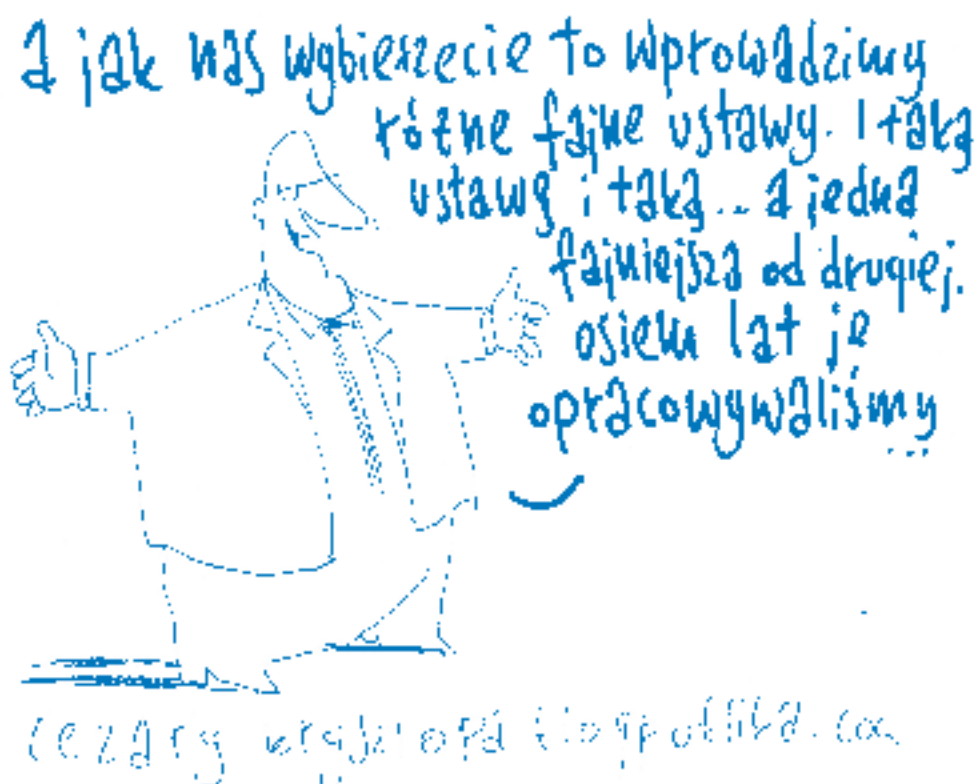 a jak nas wybierzecie to wprowadzimy
różne fajne ustawy. I taką
ustawę i taką... a jedna
fajniejsza od drugiej.
osiem lat je
opracowywaliśmy
...
cezary